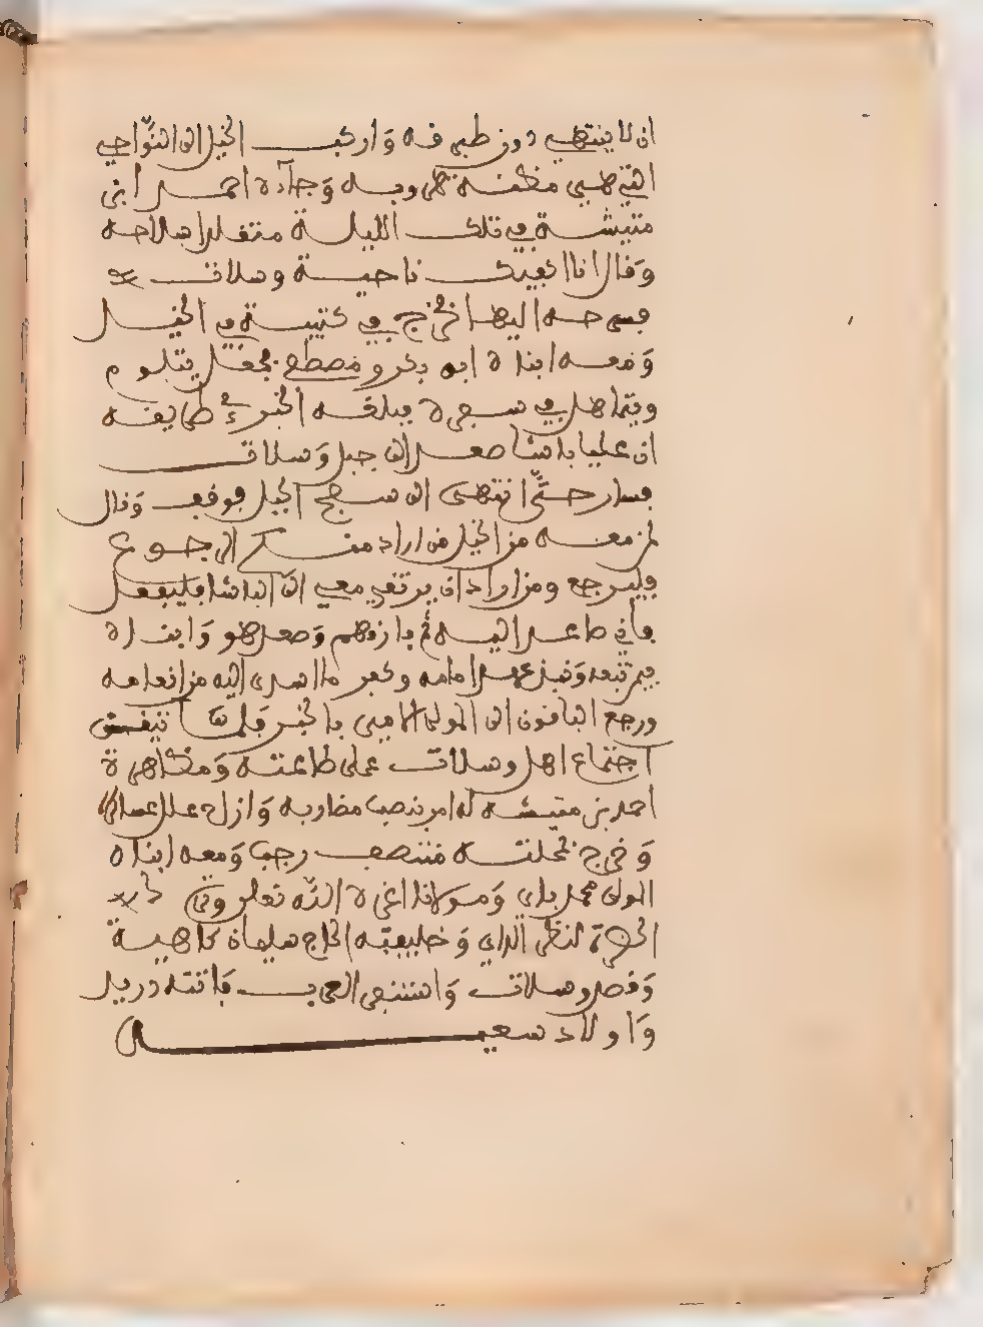 ان لا ينتهي دون ظهره وَاركب الخيل الى النّواحي
التي هي مظنة هروبه وَجاءه احمد ابن
متيشة في تلك الليلة متقلدا سلاحه
وَقال انا اكفيك ناحية وسلات
فسرحه اليها فخرج في كتيبة من الخيل
وَمعه ابناه ابو بكر ومصطفى فجعل يتلوم
ويتماهل في سفره فبلغه الخبر في طريقه
ان عليا باشا صعد الى جبل وَسلات
فسار حتّى انتهى الى سفح الجبل فوقف وَقال
لمن معه من الخيل من اراد منكم الرجوع
فليرجع ومن اراد ان يرتقي معي الى الباشا فليفعل
فاني صاعد اليه ثم فارقهم وَصعد هو وَابناه
فيمن تبعه وَنبذ عهد امامه وكفر ما اسدى اليه من انعامه
ورجع الباقون الى المولى الامير بالخبر فلمّا تيقن
اجتماع اهل وسلات على طاعته وَمظاهرة
احمد بن متيشه له امر بنصب مضاربه وَازاح علل عساكره
وَخرج بمحلته منتصف رجب وَمعه ابناه
المولى محمد باي وَمولانا اعزه الله تعلى وترك
الحضرة لنظر الداي وَخليفته الحاج سليمان كاهية
وَقصد وسلات وَاستنفر العرب فاتته دريد
وَاولاد سعيد